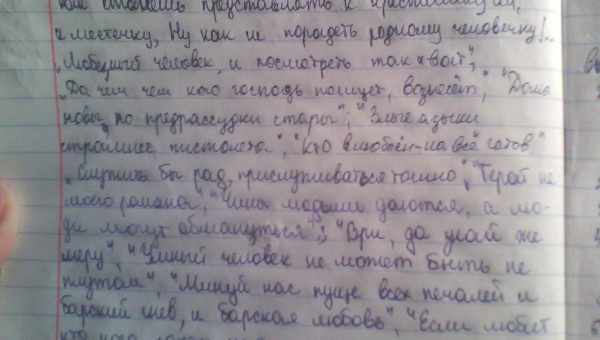 как станешь представлять к крестишку ли,
к местечку, Ну как не порадеть родному человечку!..
"Любезный человек, и посмотреть так хват",
"Да чем чем кого господь поищет, вознесёт", "Дома
новы, но предрассудки стары", "Злые языки
страшнее пистолета", "Кто влюблён-на всё готов"
"Служить бы рад, прислуживаться тошно", "Герой не
моего романа", "Чины людьми даются, а лю-
ди могут обмануться"; "Ври, да знай же
меру", "Умный человек не может быть не
плутом", "Минуй нас пуще всех печалей и
барский гнев, и барская любовь", "Если любит
кто кого